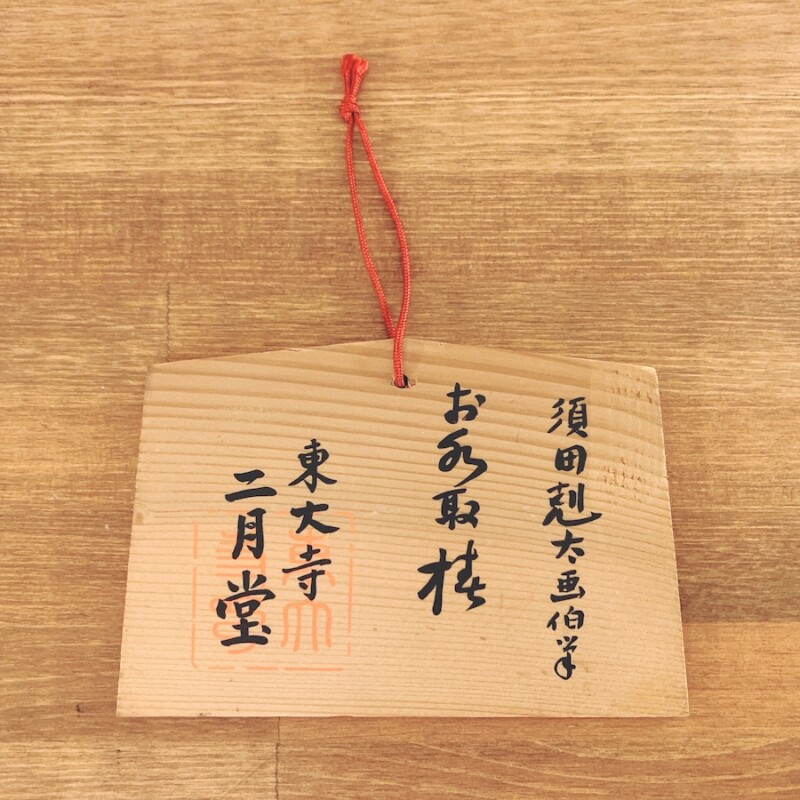 須田剋太画伯筆
お水取椿
東大寺
二月堂